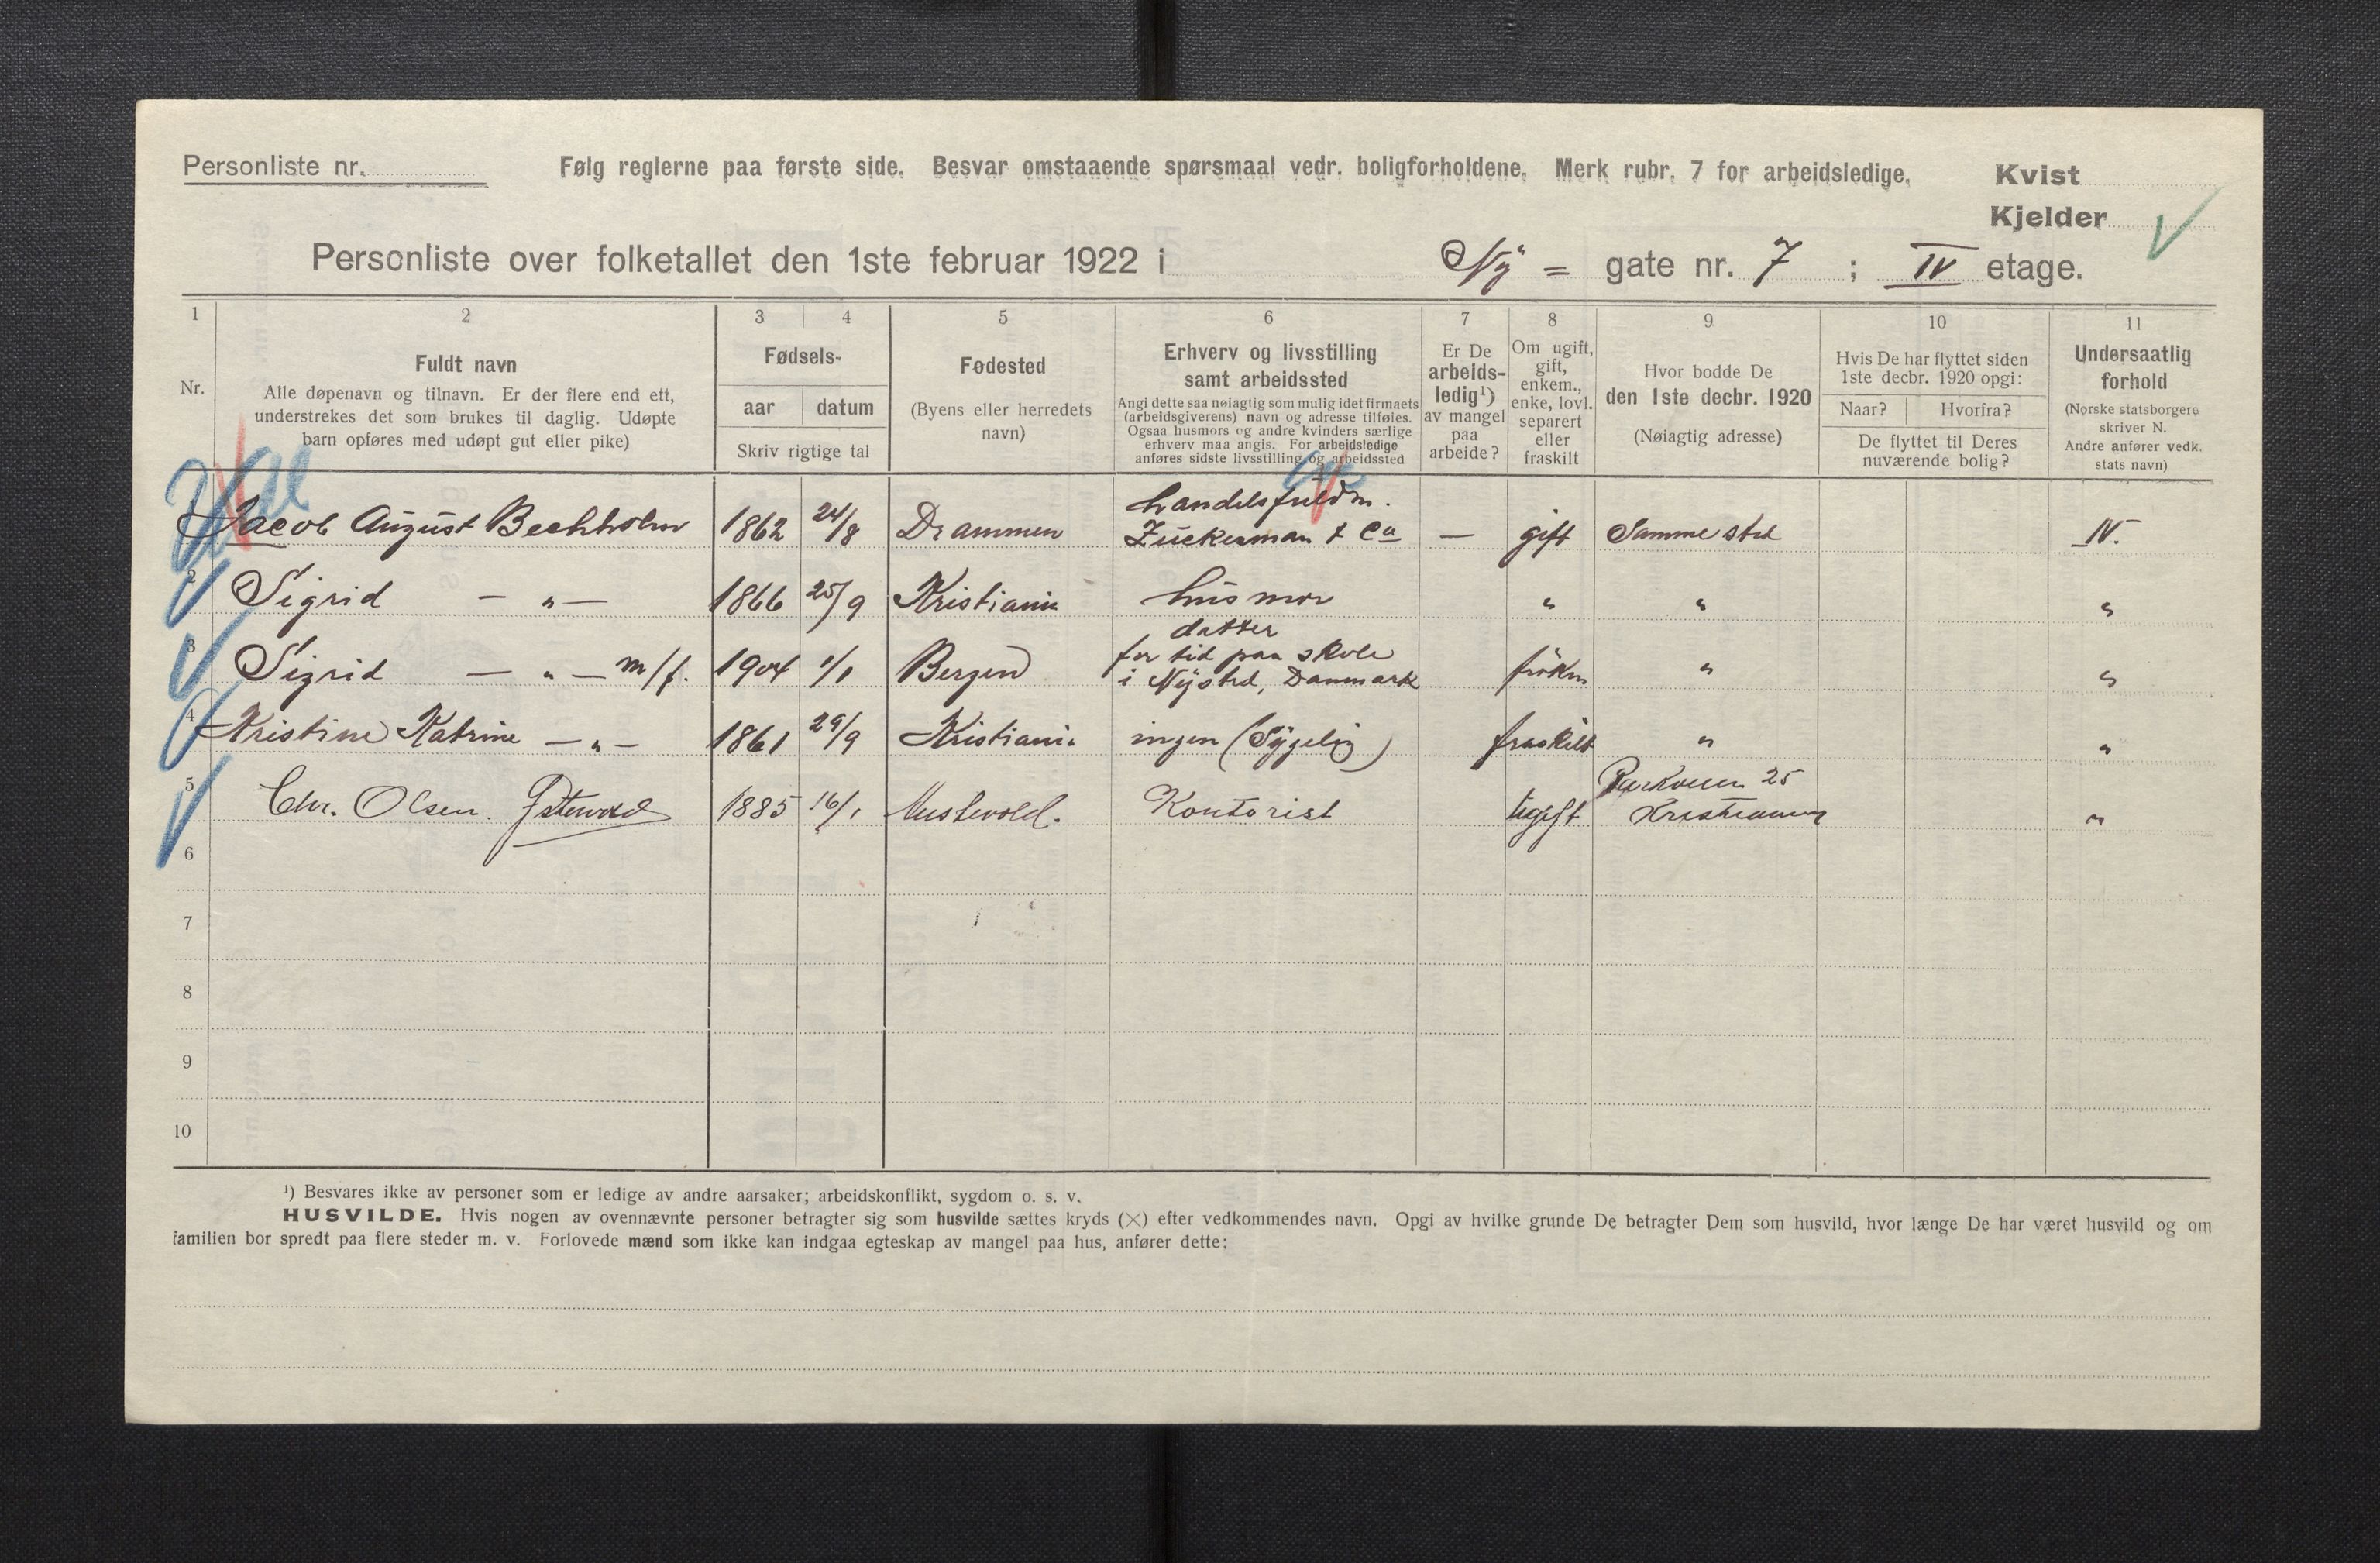 Personliste nr.
Følg reglerne paa første side. Besvar omstaaende spørsmaal vedr. boligforholdene. Merk rubr. 7 for arbeidsledige.
Kvist
Kjelder
Personliste over folketallet den 1ste februar 1922 i Ny = gate nr. 7 ; IV etage.
1 2 3 4 5 6 7 8 9 10 11
Nr.
Fuldt navn
Alle døpenavn og tilnavn. Er der flere end ett,
understrekes det som brukes til daglig. Udøpte
barn opføres med udøpt gut eller pike)
Fødsels-
aar datum
Skriv rigtige tal
Fødested
(Byens eller herredets
navn)
Erhverv og livsstilling
samt arbeidssted
Angi dette saa nøiagtig som mulig idet firmaets
(arbeidsgiverens) navn og adresse tilføies.
Ogsaa husmors og andre kvinders særlige
erhverv maa angis. For arbeidsledige
anføres sidste livsstilling og arbeidssted
Er De
arbeids-
ledig¹)
av mangel
paa
arbeide?
Om ugift,
gift,
enkem.,
enke, lovl.
separert
eller
fraskilt
Hvor bodde De
den 1ste decbr. 1920
(Nøiagtig adresse)
Hvis De har flyttet siden
1ste decbr. 1920 opgi:
Naar? Hvorfra?
De flyttet til Deres
nuværende bolig?
Undersaatlig
forhold
(Norske statsborgere
skriver N.
Andre anfører vedk.
stats navn)
Jacob August Bechholm 1862 24/8 Drammen handelsfuldm. Zuckerman & Co — gift Samme sted N.
2 Sigrid — „ — 1866 25/9 Kristiania husmor „ „ „
3 Sigrid — „ — m/f. 1904 1/1 Bergen datter
for tid paa skole
i Nysted, Danmark frøken „ „
4 Kristine Katrine — „ — 1861 29/9 Kristiania ingen (Sygelig) fraskilt „ „
5 Chr. Olsen 1885 16/1 Kontorist ugift Parkveien 25
Kristiania „
6
7
8
9
10
¹) Besvares ikke av personer som er ledige av andre aarsaker; arbeidskonflikt, sygdom o. s. v.
HUSVILDE. Hvis nogen av ovennævnte personer betragter sig som husvilde sættes kryds (×) efter vedkommendes navn. Opgi av hvilke grunde De betragter Dem som husvild, hvor længe De har været husvild og om
familien bor spredt paa flere steder m. v. Forlovede mænd som ikke kan indgaa egteskap av mangel paa hus, anfører dette: